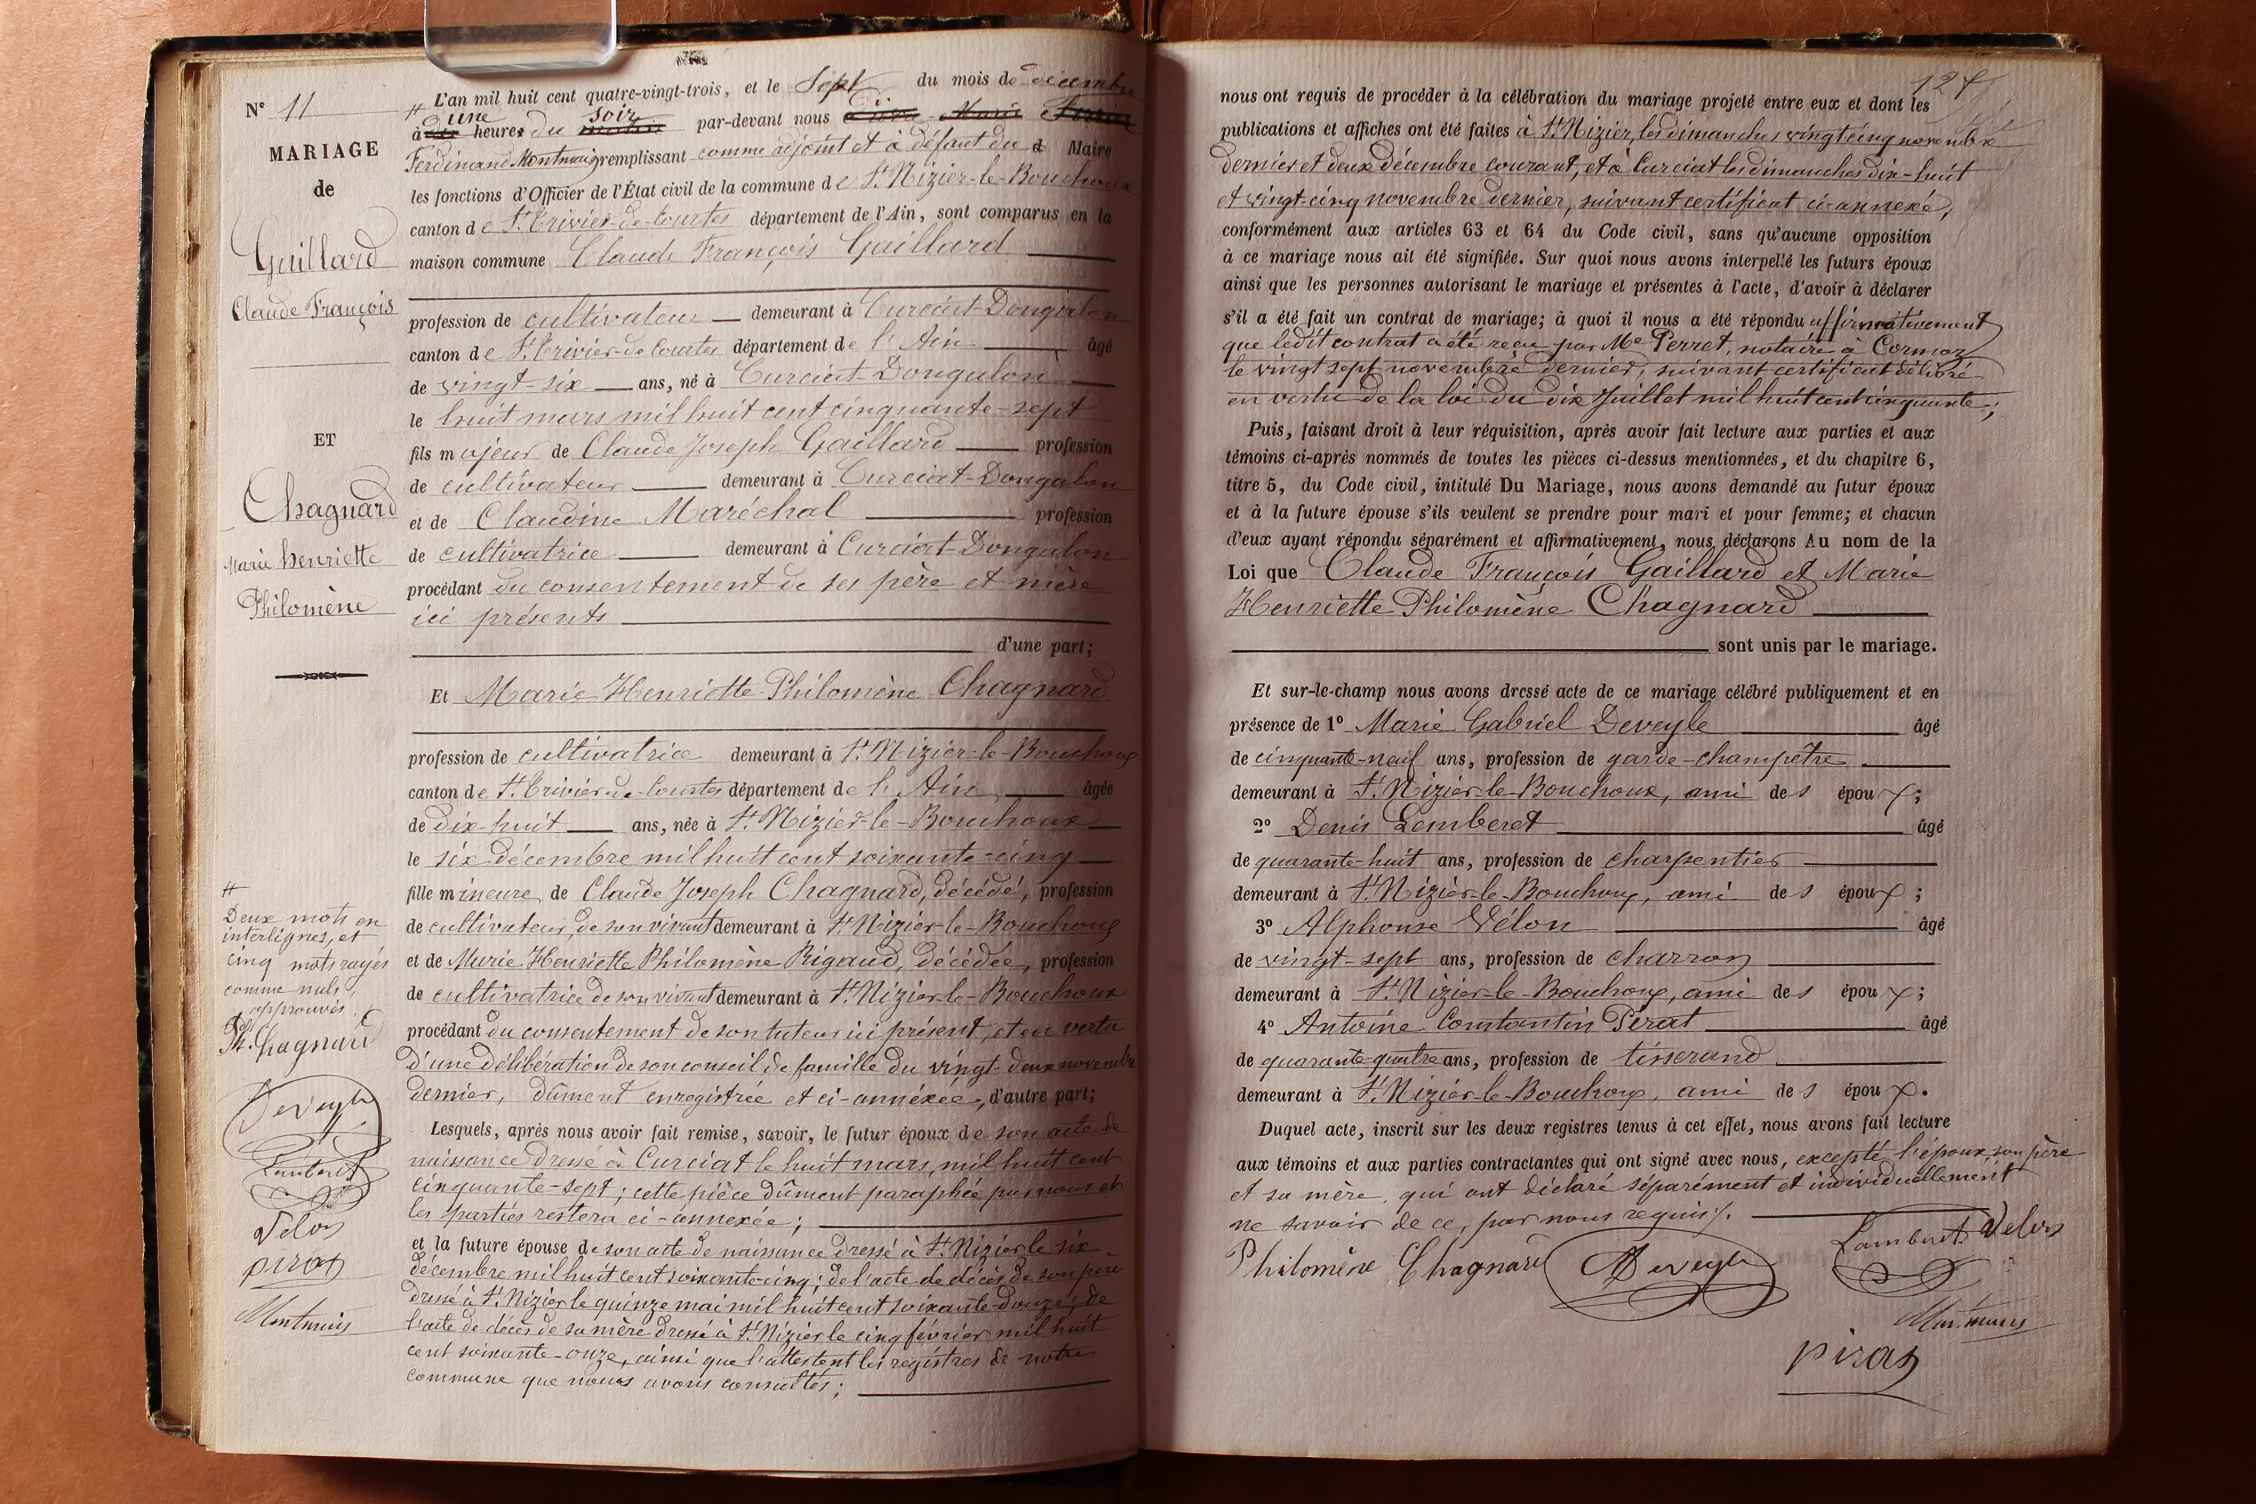 N° 11
MARIAGE
de
Gaillard
Claude François
ET
Chagnard
Marie Henriette
Philomène
#
Deux mots en
interlignes, et
cinq mots rayés
comme nuls,
approuvés.
Ph. Chagnard
Deveyle
Lamberet
Velon
piras
Montmain
L'an mil huit cent quatre-vingt-trois, et le Sept du mois de décembre
# à dix une heures du matin soir par-devant nous
Ferdinand Montmain remplissant comme adjoint et à défaut du d Maire
les fonctions d'Officier de l'État civil de la commune de St Nizier-le-Bouchoux
canton de St Trivier-de-Courtes département de l'Ain, sont comparus en la
maison commune Claude François Gaillard
profession de cultivateur demeurant à Curciat-Dongalon
canton de St Trivier-de-Courtes département de l'Ain âgé
de vingt-six ans, né à Curciat-Dongalon
le huit mars mil huit cent cinquante-sept
fils majeur de Claude Joseph Gaillard profession
de cultivateur demeurant à Curciat-Dongalon
et de Claudine Maréchal profession
de cultivatrice demeurant à Curciat-Dongalon
procédant du consentement de ses père et mère
ici présents
d'une part;
Et Marie Henriette Philomène Chagnard
profession de cultivatrice demeurant à St Nizier-le-Bouchoux
canton de St Trivier-de-Courtes département de l'Ain âgée
de dix-huit ans, née à St Nizier-le-Bouchoux
le six décembre mil huit cent soixante-cinq
fille mineure de Claude Joseph Chagnard, décédé, profession
de cultivateur, de son vivant demeurant à St Nizier-le-Bouchoux
et de Marie Henriette Philomène Rigaud, décédée, profession
de cultivatrice de son vivant demeurant à St Nizier-le-Bouchoux
procédant du consentement de son tuteur ici présent, et en vertu
d'une délibération de son conseil de famille du vingt-deux novembre
dernier, dûment enregistrée et ci-annexée, d'autre part;
Lesquels, après nous avoir fait remise, savoir, le futur époux de son acte de
naissance dressé à Curciat le huit mars, mil huit cent
cinquante-sept; cette pièce dûment paraphée par nous et
les parties restera ci-annexée;
et la future épouse de son acte de naissance dressé à St Nizier le six
décembre mil huit cent soixante cinq; de l'acte de décès de son père
dressé à St Nizier le quinze mai mil huit cent soixante-douze; de
l'acte de décès de sa mère dressé à St Nizier le cinq février mil huit
cent soixante-onze, ainsi que l'attestent les registres de notre
commune que nous avons consultés;
127
nous ont requis de procéder à la célébration du mariage projeté entre eux et dont les
publications et affiches ont été faites à St Nizier, les dimanches vingt cinq novembre
dernier et deux décembre courant, et à Curciat les dimanches dix-huit
et vingt-cinq novembre dernier, suivant certificat ci-annexé,
conformément aux articles 63 et 64 du Code civil, sans qu'aucune opposition
à ce mariage nous ait été signifiée. Sur quoi nous avons interpellé les futurs époux
ainsi que les personnes autorisant le mariage et présentes à l'acte, d'avoir à déclarer
s'il a été fait un contrat de mariage; à quoi il nous a été répondu affirmativement
que ledit contrat a été reçu par Me Perret, notaire à Cormoz
le vingt sept novembre dernier, suivant certificat délivré
en vertu de la loi du dix Juillet mil huit cent cinquante;
Puis, faisant droit à leur réquisition, après avoir fait lecture aux parties et aux
témoins ci-après nommés de toutes les pièces ci-dessus mentionnées, et du chapitre 6,
titre 5, du Code civil, intitulé Du Mariage, nous avons demandé au futur époux
et à la future épouse s'ils veulent se prendre pour mari et pour femme; et chacun
d'eux ayant répondu séparément et affirmativement, nous déclarons Au nom de la
Loi que Claude François Gaillard et Marie
Henriette Philomène Chagnard
sont unis par le mariage.
Et sur-le-champ nous avons dressé acte de ce mariage célébré publiquement et en
présence de 1° Marie Gabriel Deveyle âgé
de cinquante-neuf ans, profession de garde-champêtre
demeurant à St Nizier-le-Bouchoux, ami des époux;
2° Denis Lamberet âgé
de quarante-huit ans, profession de charpentier
demeurant à St Nizier-le-Bouchoux, ami des époux;
3° Alphonse Vélon âgé
de vingt-sept ans, profession de charron
demeurant à St Nizier-le-Bouchoux, ami des époux;
4° Antoine Constantin Pirat âgé
de quarante-quatre ans, profession de tisserand
demeurant à St Nizier-le-Bouchoux, ami des époux.
Duquel acte, inscrit sur les deux registres tenus à cet effet, nous avons fait lecture
aux témoins et aux parties contractantes qui ont signé avec nous, excepté l'époux, son père
et sa mère, qui ont déclaré séparément et individuellement
ne savoir de ce, par nous requis.
Philomène Chagnard Deveyle Lamberet Velon
Montmain
piras